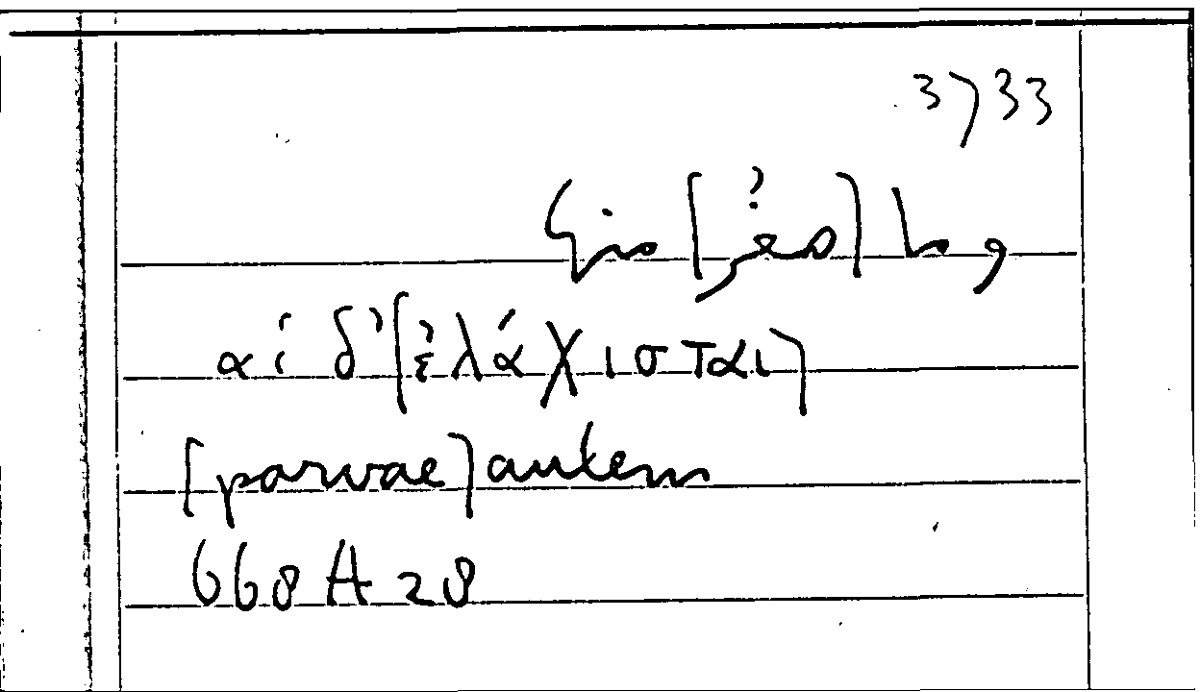 3733
αἱ δ' [ἐλάχισται]
[parvae] autem
668 A 28